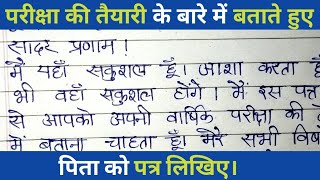 परीक्षा की तैयारी के बारे में बताते हुए
सादर प्रणाम!
मैं यहाँ सकुशल हूँ। आशा करता
भी वहाँ सकुशल होंगे। मैं इस पत्र
से आपको अपनी वार्षिक परीक्षा की
में बताना चाहता हूँ। मेरे सभी
पिता को पत्र लिखिए।